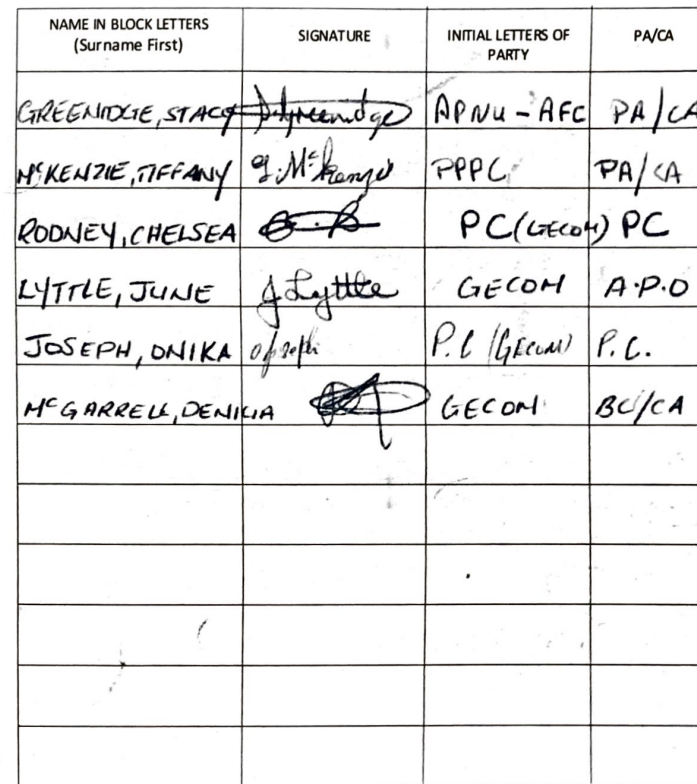 NAME IN BLOCK LETTERS SIGNATURE INITIAL LETTERS OF PA/CA
(Surname First) PARTY
GREENIDGE, STACY APNU - AFC PA/CA
McKENZIE, TIFFANY T. McKenzie PPPC PA/CA
RODNEY, CHELSEA PC (GECOM) PC
LYTTLE, JUNE J Lyttle GECOM A.P.O
JOSEPH, ONIKA P.C (GECOM) P.C.
McGARRELL, DENICIA GECOM BC/CA